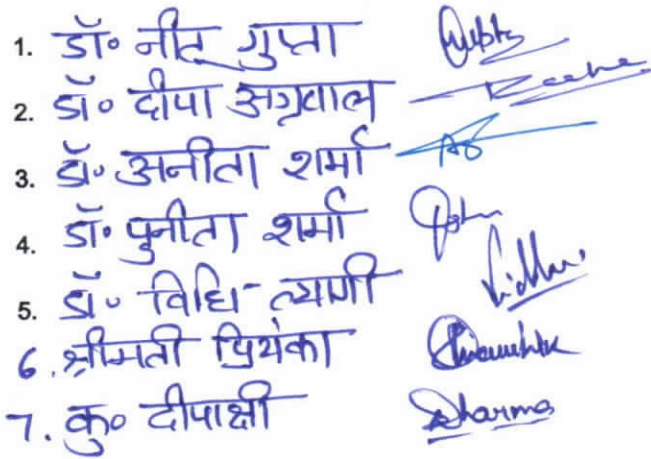 1. डॉ॰ नीतू गुप्ता Gupta
2. डॉ॰ दीपा अग्रवाल
3. डॉ॰ अनीता शर्मा
4. डॉ॰ पुनीता शर्मा
5. डॉ॰ विधि त्यागी Vidhi
6. श्रीमती प्रियंका
7. कु॰ दीपाक्षी Sharma